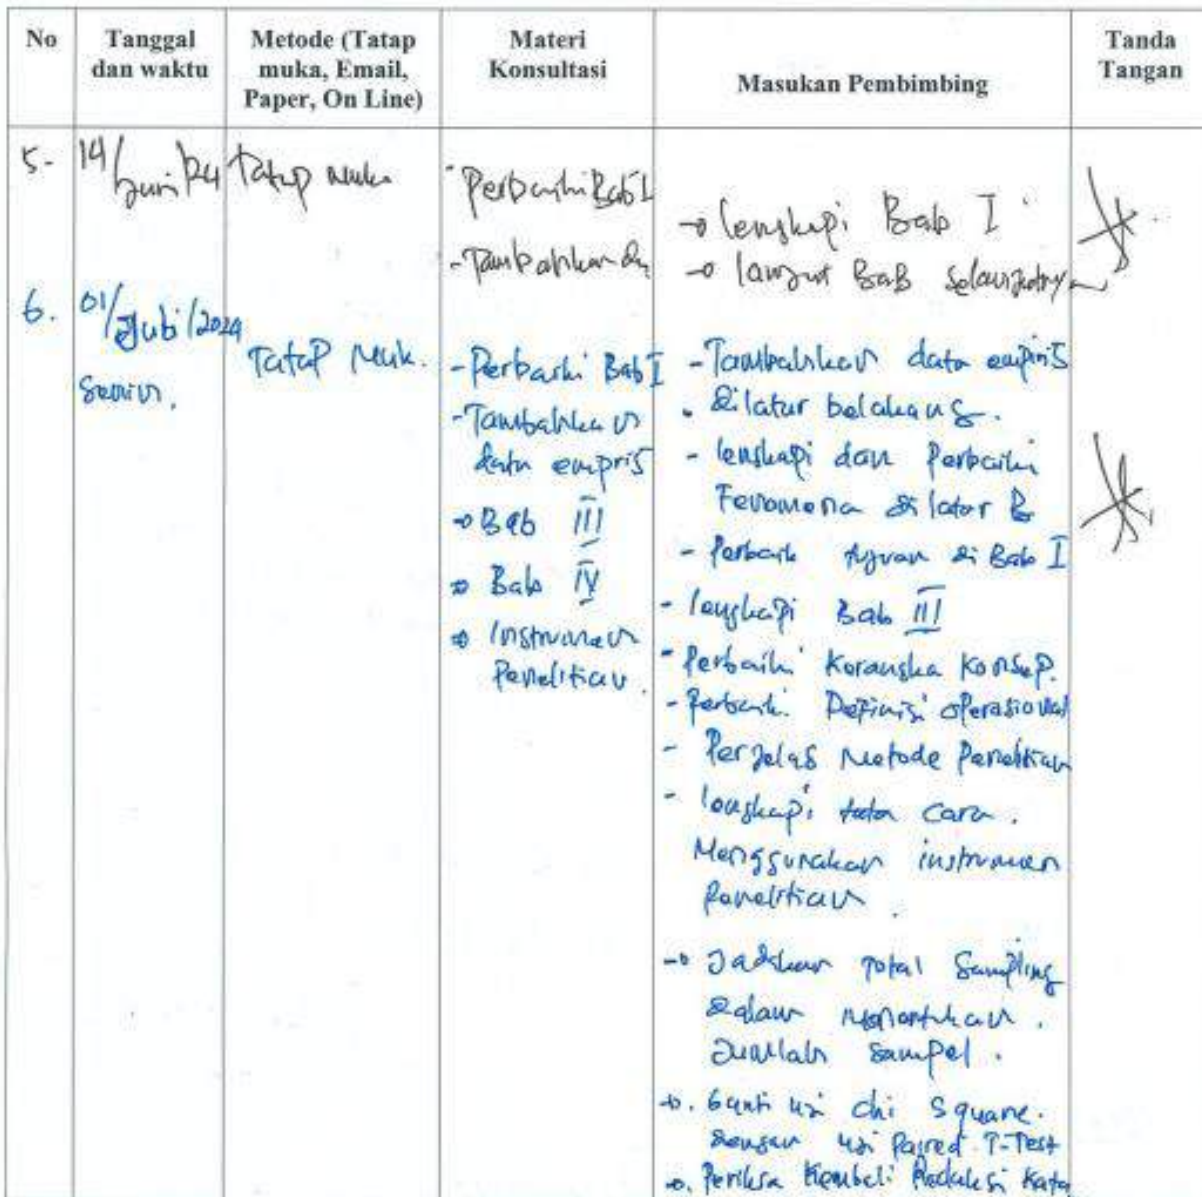 No
Tanggal dan waktu
Metode (Tatap muka, Email, Paper, On Line)
Materi Konsultasi
Masukan Pembimbing
Tanda Tangan
5. 14/Juni/24
Tatap Muka
- Perbaiki Bab I
- Tambahkan
→ lengkapi Bab I
→ lanjut Bab selanjutnya
6. 01/Juli/2024
Senin.
Tatap Muk.
- Perbaiki Bab I
- Tambahkan
data empris
→ Bab III
→ Bab IV
→ Instrumen
Penelitian.
- Tambahkan data empiris
dilatar belakang.
- lengkapi dan Perbaiki
Fenomena dilatar B
- Perbaik tujuan di Bab I
- lengkapi Bab III
- Perbaiki Kerangka Konsep.
- Perbaiki Definisi operasional
- Perjelas Metode Penelitian
- lengkapi tata cara.
Menggunakan instrumen
Penelitian.
→ Jadikan total Sampling
dalam menentukan.
Jumlah sampel.
→. Ganti uji chi square.
dengan uji Paired T-Test
→. Periksa Kembali Redaksi Kata